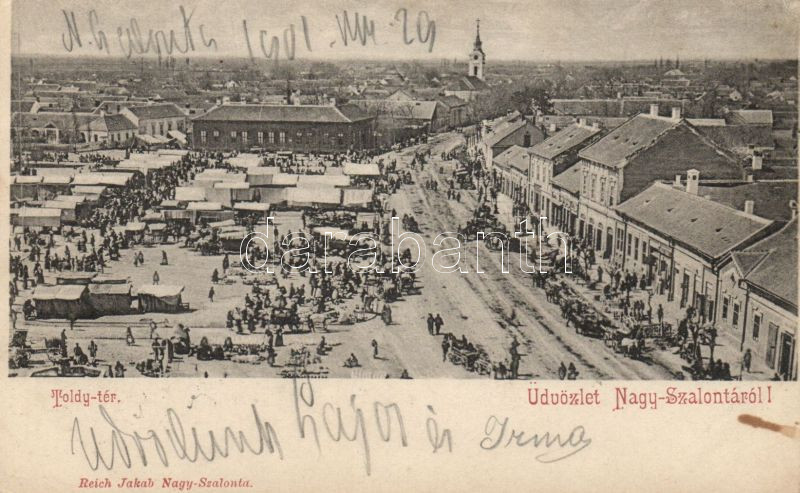 N. Szalonta 1901. VIII. 29
darabanth
Toldy-tér.
Üdvözlet Nagy-Szalontáról!
üdvözlünk Lajos és Irma
Reich Jakab Nagy-Szalonta.